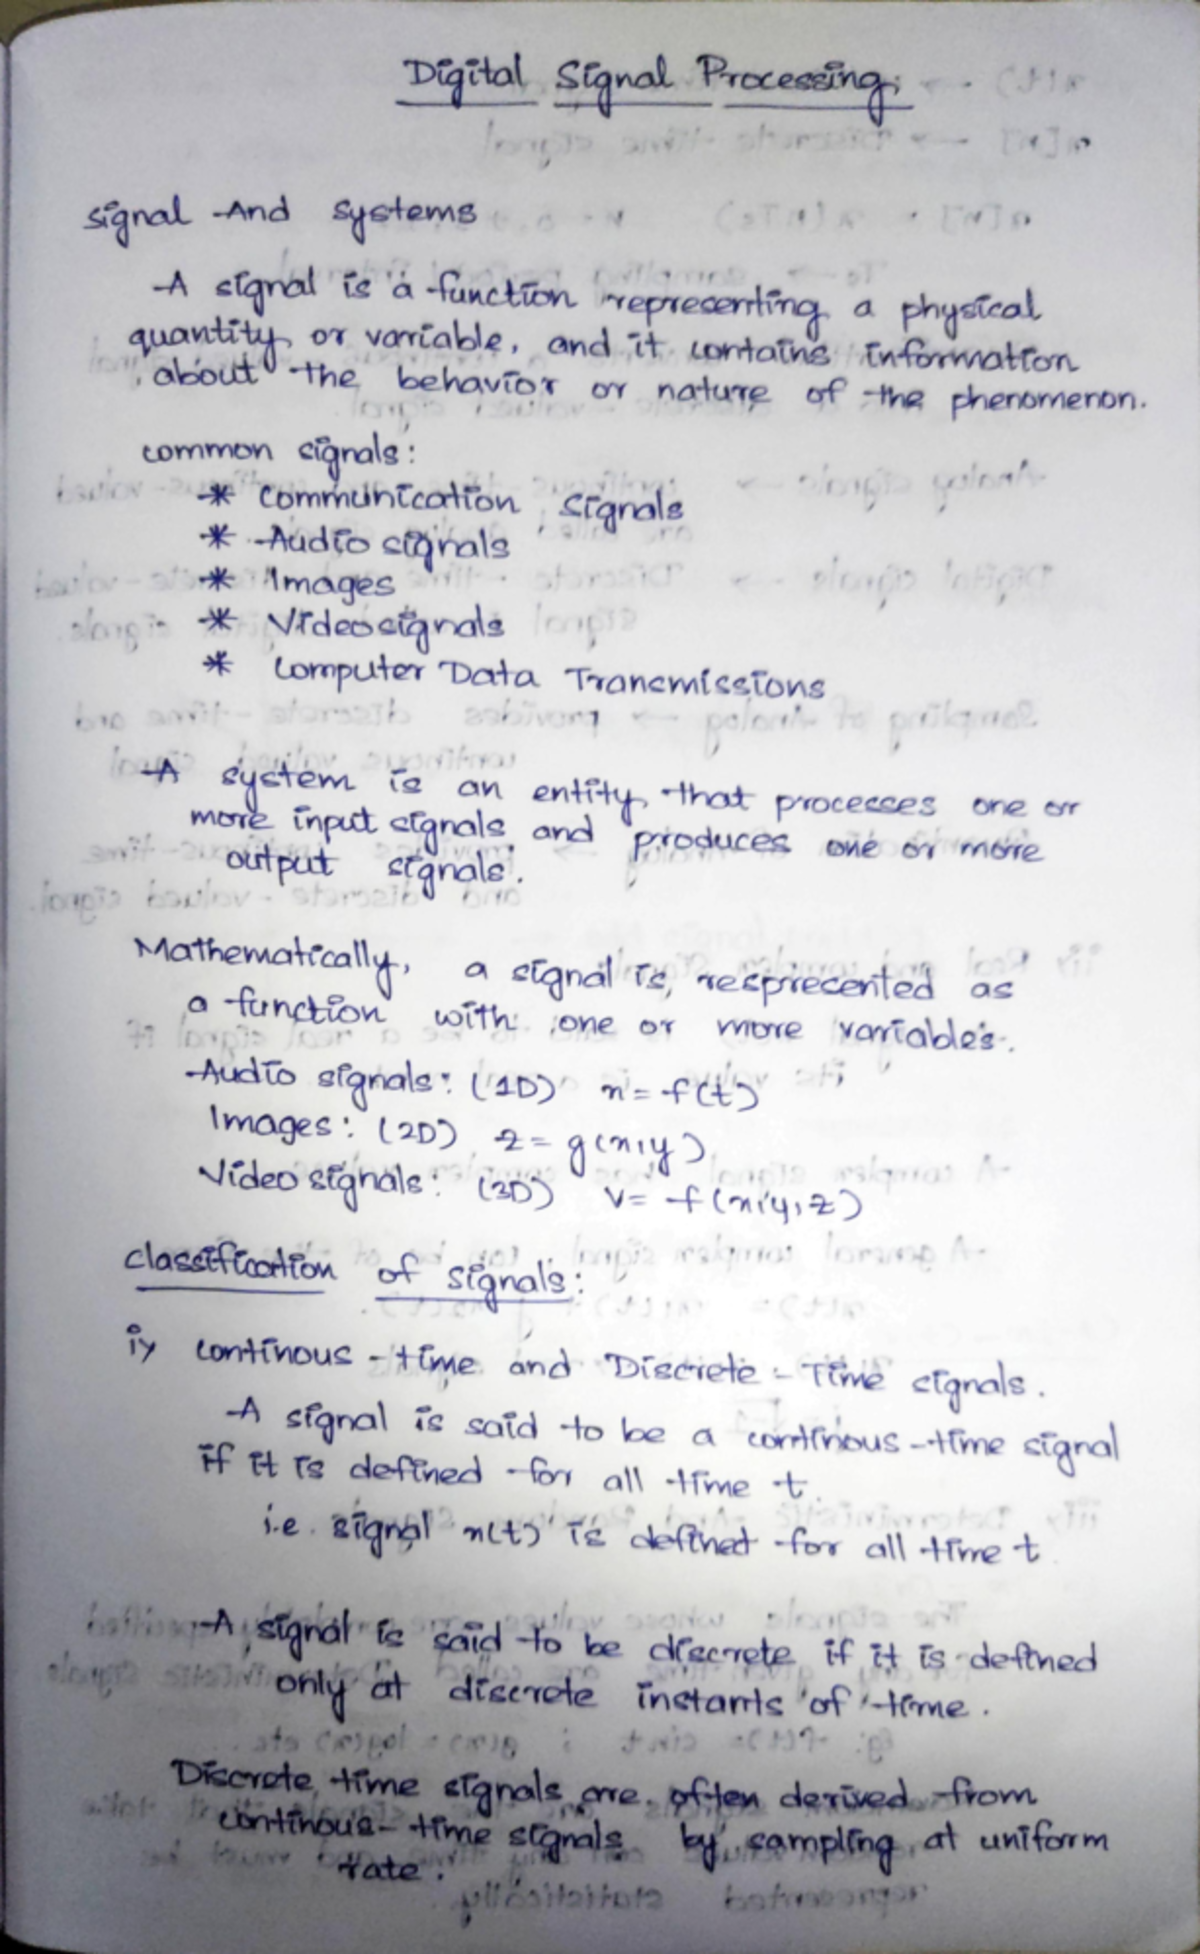 Digital Signal Processing:
signal And systems
A signal is a function representing a physical
quantity or variable, and it contains information
about the behavior or nature of the phenomenon.
common signals:
* Communication Signals
* Audio signals
* Images
* Video signals
* Computer Data Transmissions
A system is an entity that processes one or
more input signals and produces one or more
output signals.
Mathematically, a signal is respresented as
a function with one or more variables.
Audio signals: (1D) x = f(t)
Images: (2D) z = g(x,y)
Video signals: (3D) v = f(x,y,z)
classification of signals:
i) continous - time and Discrete - Time signals.
A signal is said to be a continous - time signal
if it is defined for all time t.
i.e. signal x(t) is defined for all time t
A signal is said to be discrete if it is defined
only at discrete instants of time.
Discrete time signals are often derived from
continous - time signals by sampling at uniform
rate.